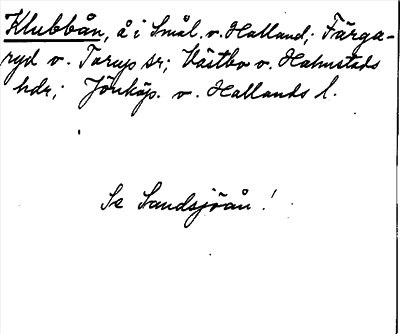 Klubbån, å i Smål. v. Halland; Färga-
ryd v. Torup sr; Västbo v. Halmstads
hdr; Jönköp. v. Hallands l.
Se Sandsjöån!